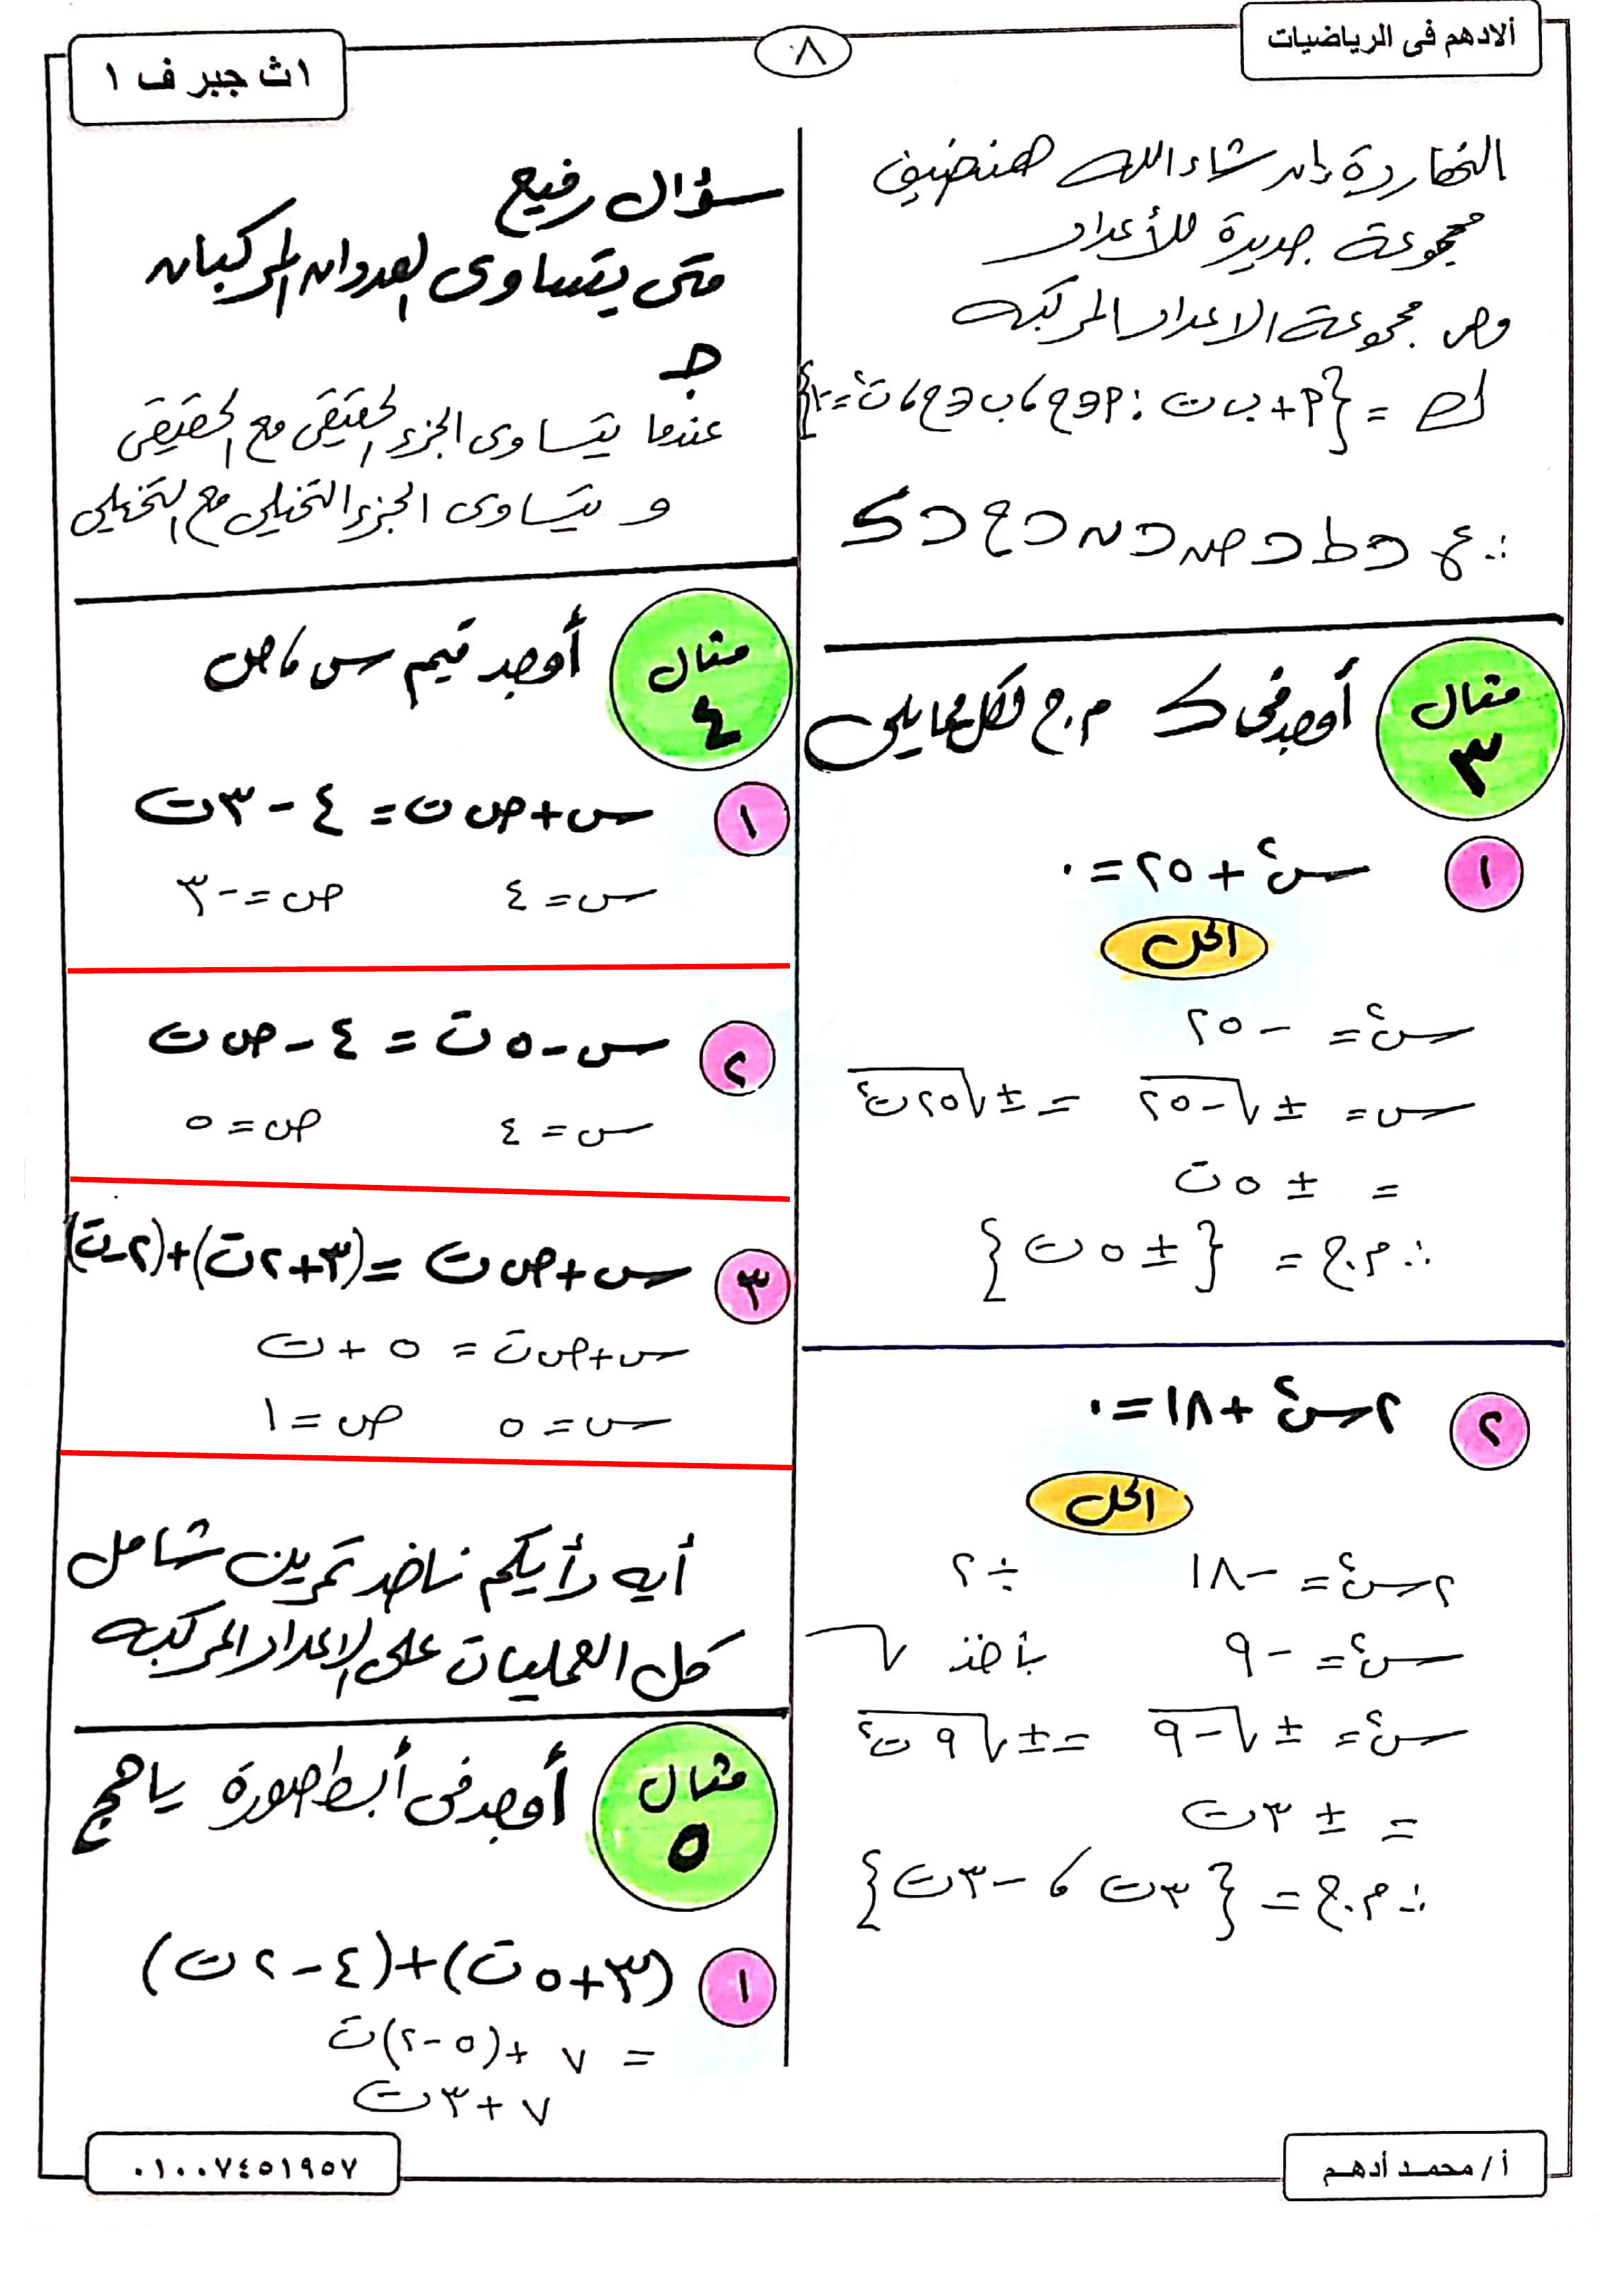 ألادهم فى الرياضيات
٨
١ث جبر ف ١
النهاردة إن شاء الله هنضيف
مجموعة جديدة للأعداد
وهى مجموعة الاعداد المركبه
ك = {أ + ب ت : أ ∈ ح ، ب ∈ ح ، ت² = -١}
∴ ع ⊂ ط ⊂ ص ⊂ ن ⊂ ح ⊂ ك
مثال ٣
أوجد فى ك م.ح لكل مما يلى
١ س² + ٢٥ = ٠
الحل
س² = - ٢٥
س = ± √-٢٥ = ± √٢٥ت²
= ± ٥ ت
∴ م.ح = { ± ٥ ت }
٢ ٢س² + ١٨ = ٠
الحل
٢س² = -١٨ ÷ ٢
س² = - ٩ بأخذ √
س² = ± √-٩ = ± √٩ت²
= ± ٣ت
∴ م.ح = { ٣ت ، -٣ت }
سؤال رفيع
متى يتساوى العددان المركبان
جـ
عندما يتساوى الجزء الحقيقى مع الحقيقى
و يتساوى الجزء التخيلى مع التخيلى
مثال ٤
أوجد قيم س ، ص
١ س + ص ت = ٤ - ٣ت
س = ٤ ص = -٣
٢ س - ٥ ت = ٤ - ص ت
س = ٤ ص = ٥
٣ س + ص ت = (٣ + ٢ت) + (٢ - ت)
س + ص ت = ٥ + ت
س = ٥ ص = ١
أيه رأيكم ناخد تمرين شامل
كل العمليات على الاعداد المركبه
مثال ٥
أوجد فى أبسط صورة يا حج
١ (٣ + ٥ ت) + (٤ - ٢ ت)
= ٧ + (٥ - ٢) ت
٧ + ٣ت
أ / محمد أدهم
٠١٠٠٧٤٥١٩٥٧